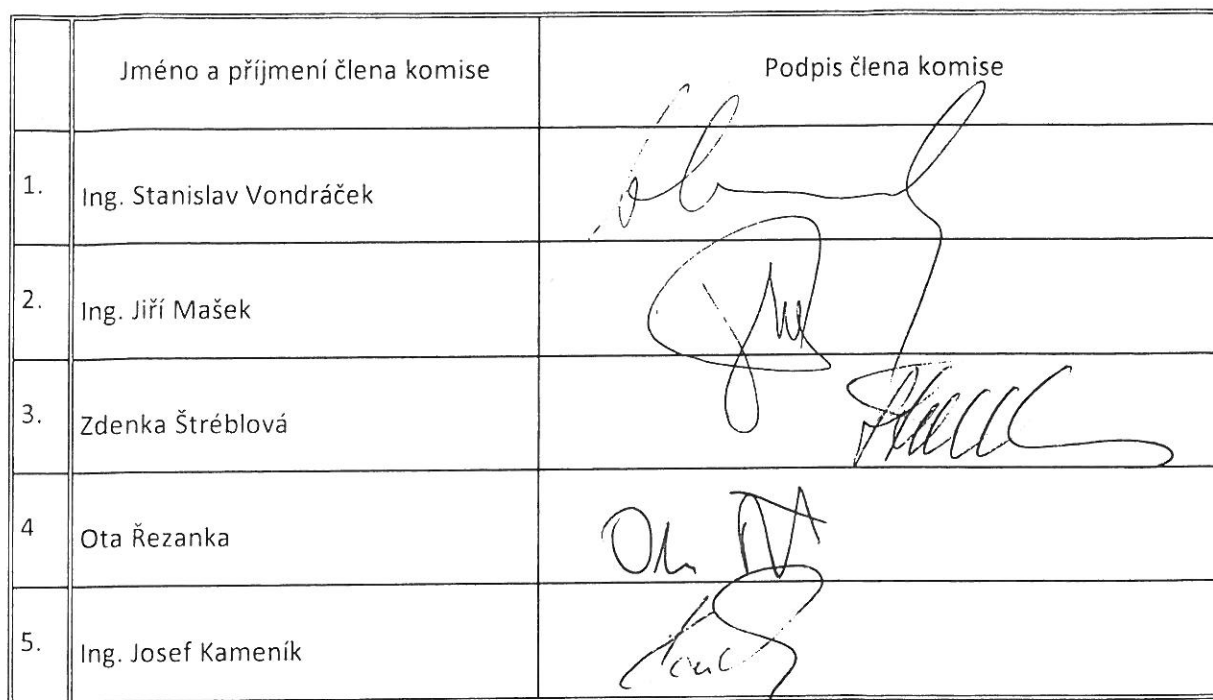 Jméno a příjmení člena komise Podpis člena komise
1. Ing. Stanislav Vondráček
2. Ing. Jiří Mašek
3. Zdenka Štréblová
4 Ota Řezanka
5. Ing. Josef Kameník